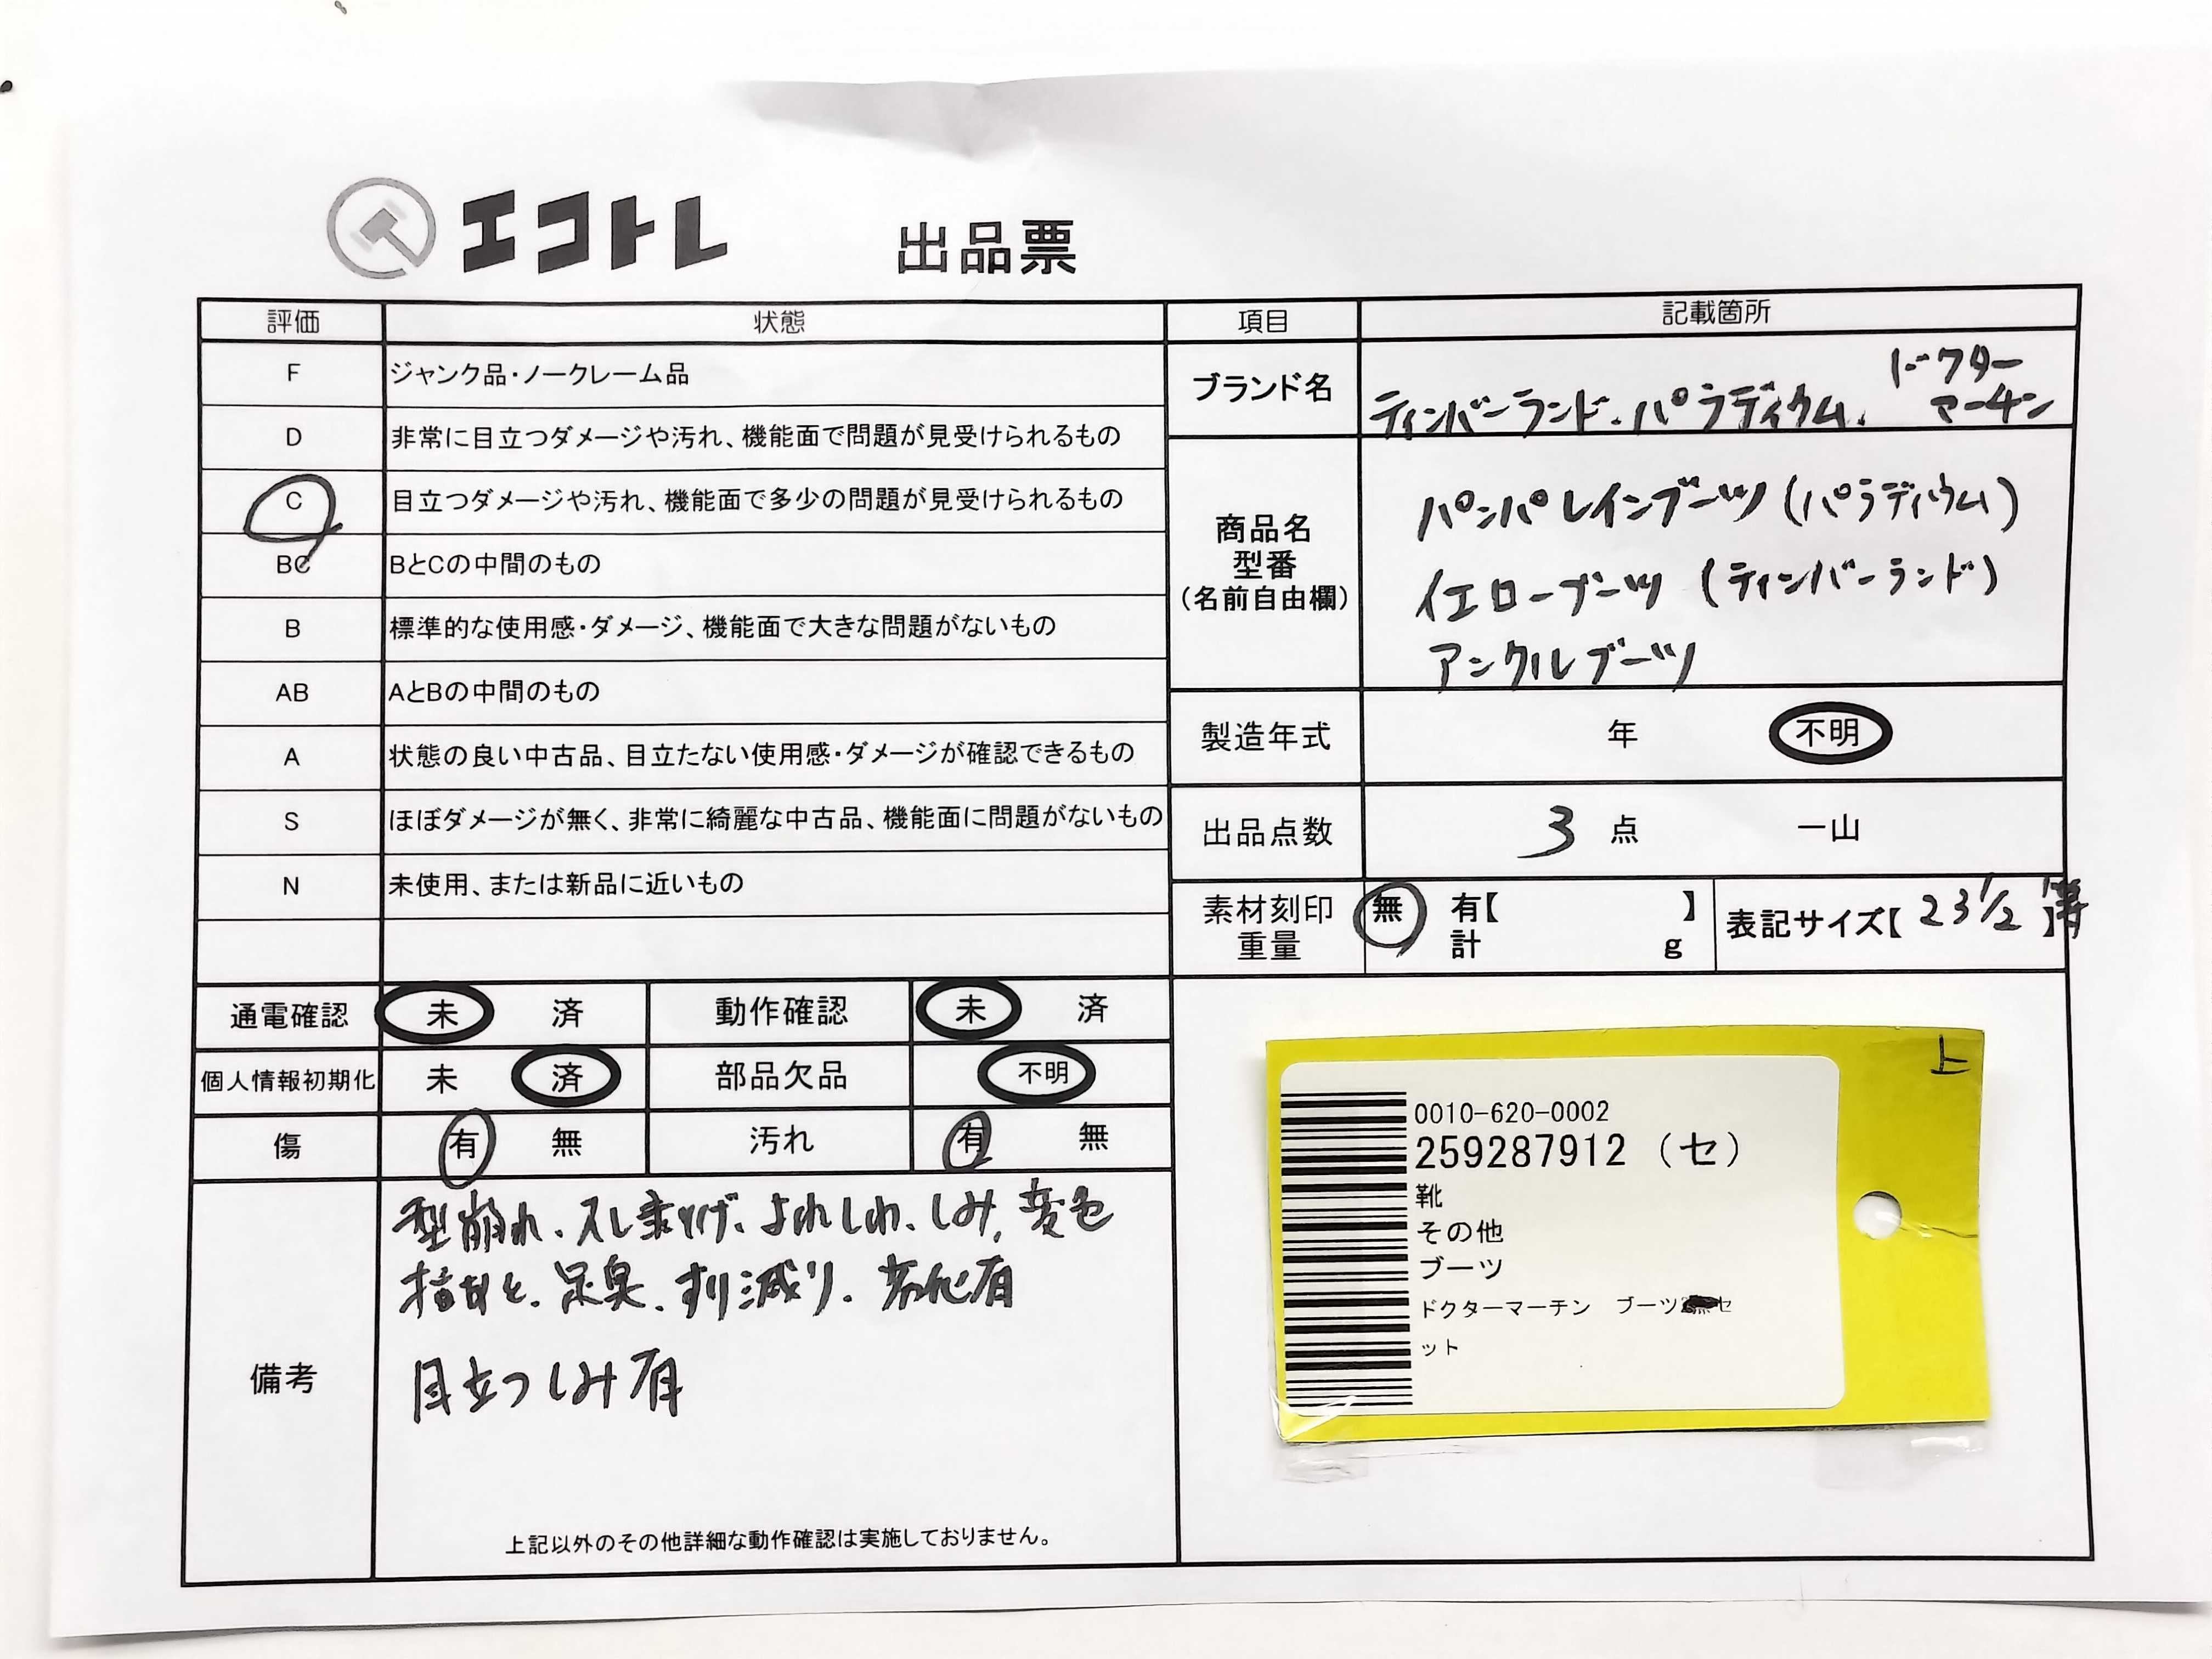 エコトレ 出品票
評価 状態 項目 記載箇所
F ジャンク品・ノークレーム品
D 非常に目立つダメージや汚れ、機能面で問題が見受けられるもの
C 目立つダメージや汚れ、機能面で多少の問題が見受けられるもの
BC BとCの中間のもの
B 標準的な使用感・ダメージ、機能面で大きな問題がないもの
AB AとBの中間のもの
A 状態の良い中古品、目立たない使用感・ダメージが確認できるもの
S ほぼダメージが無く、非常に綺麗な中古品、機能面に問題がないもの
N 未使用、または新品に近いもの
ブランド名 ティンバーランド.パラディウム.ドクターマーチン
商品名
型番
(名前自由欄)
パンパレインブーツ(パラディウム)
イエローブーツ(ティンバーランド)
アンクルブーツ
製造年式 年 不明
出品点数 3 点 一山
素材刻印 無 有【 】
重量 計 g
表記サイズ【23 1/2 】等
通電確認 未 済 動作確認 未 済
個人情報初期化 未 済 部品欠品 不明
傷 有 無 汚れ 有 無
備考
型崩れ、スレ剥げ、よれしわ、しみ、変色
指あと、足臭、すり減り、劣化有
目立つしみ有
上記以外のその他詳細な動作確認は実施しておりません。
上
0010-620-0002
259287912 (セ)
靴
その他
ブーツ
ドクターマーチン ブーツ セ
ット